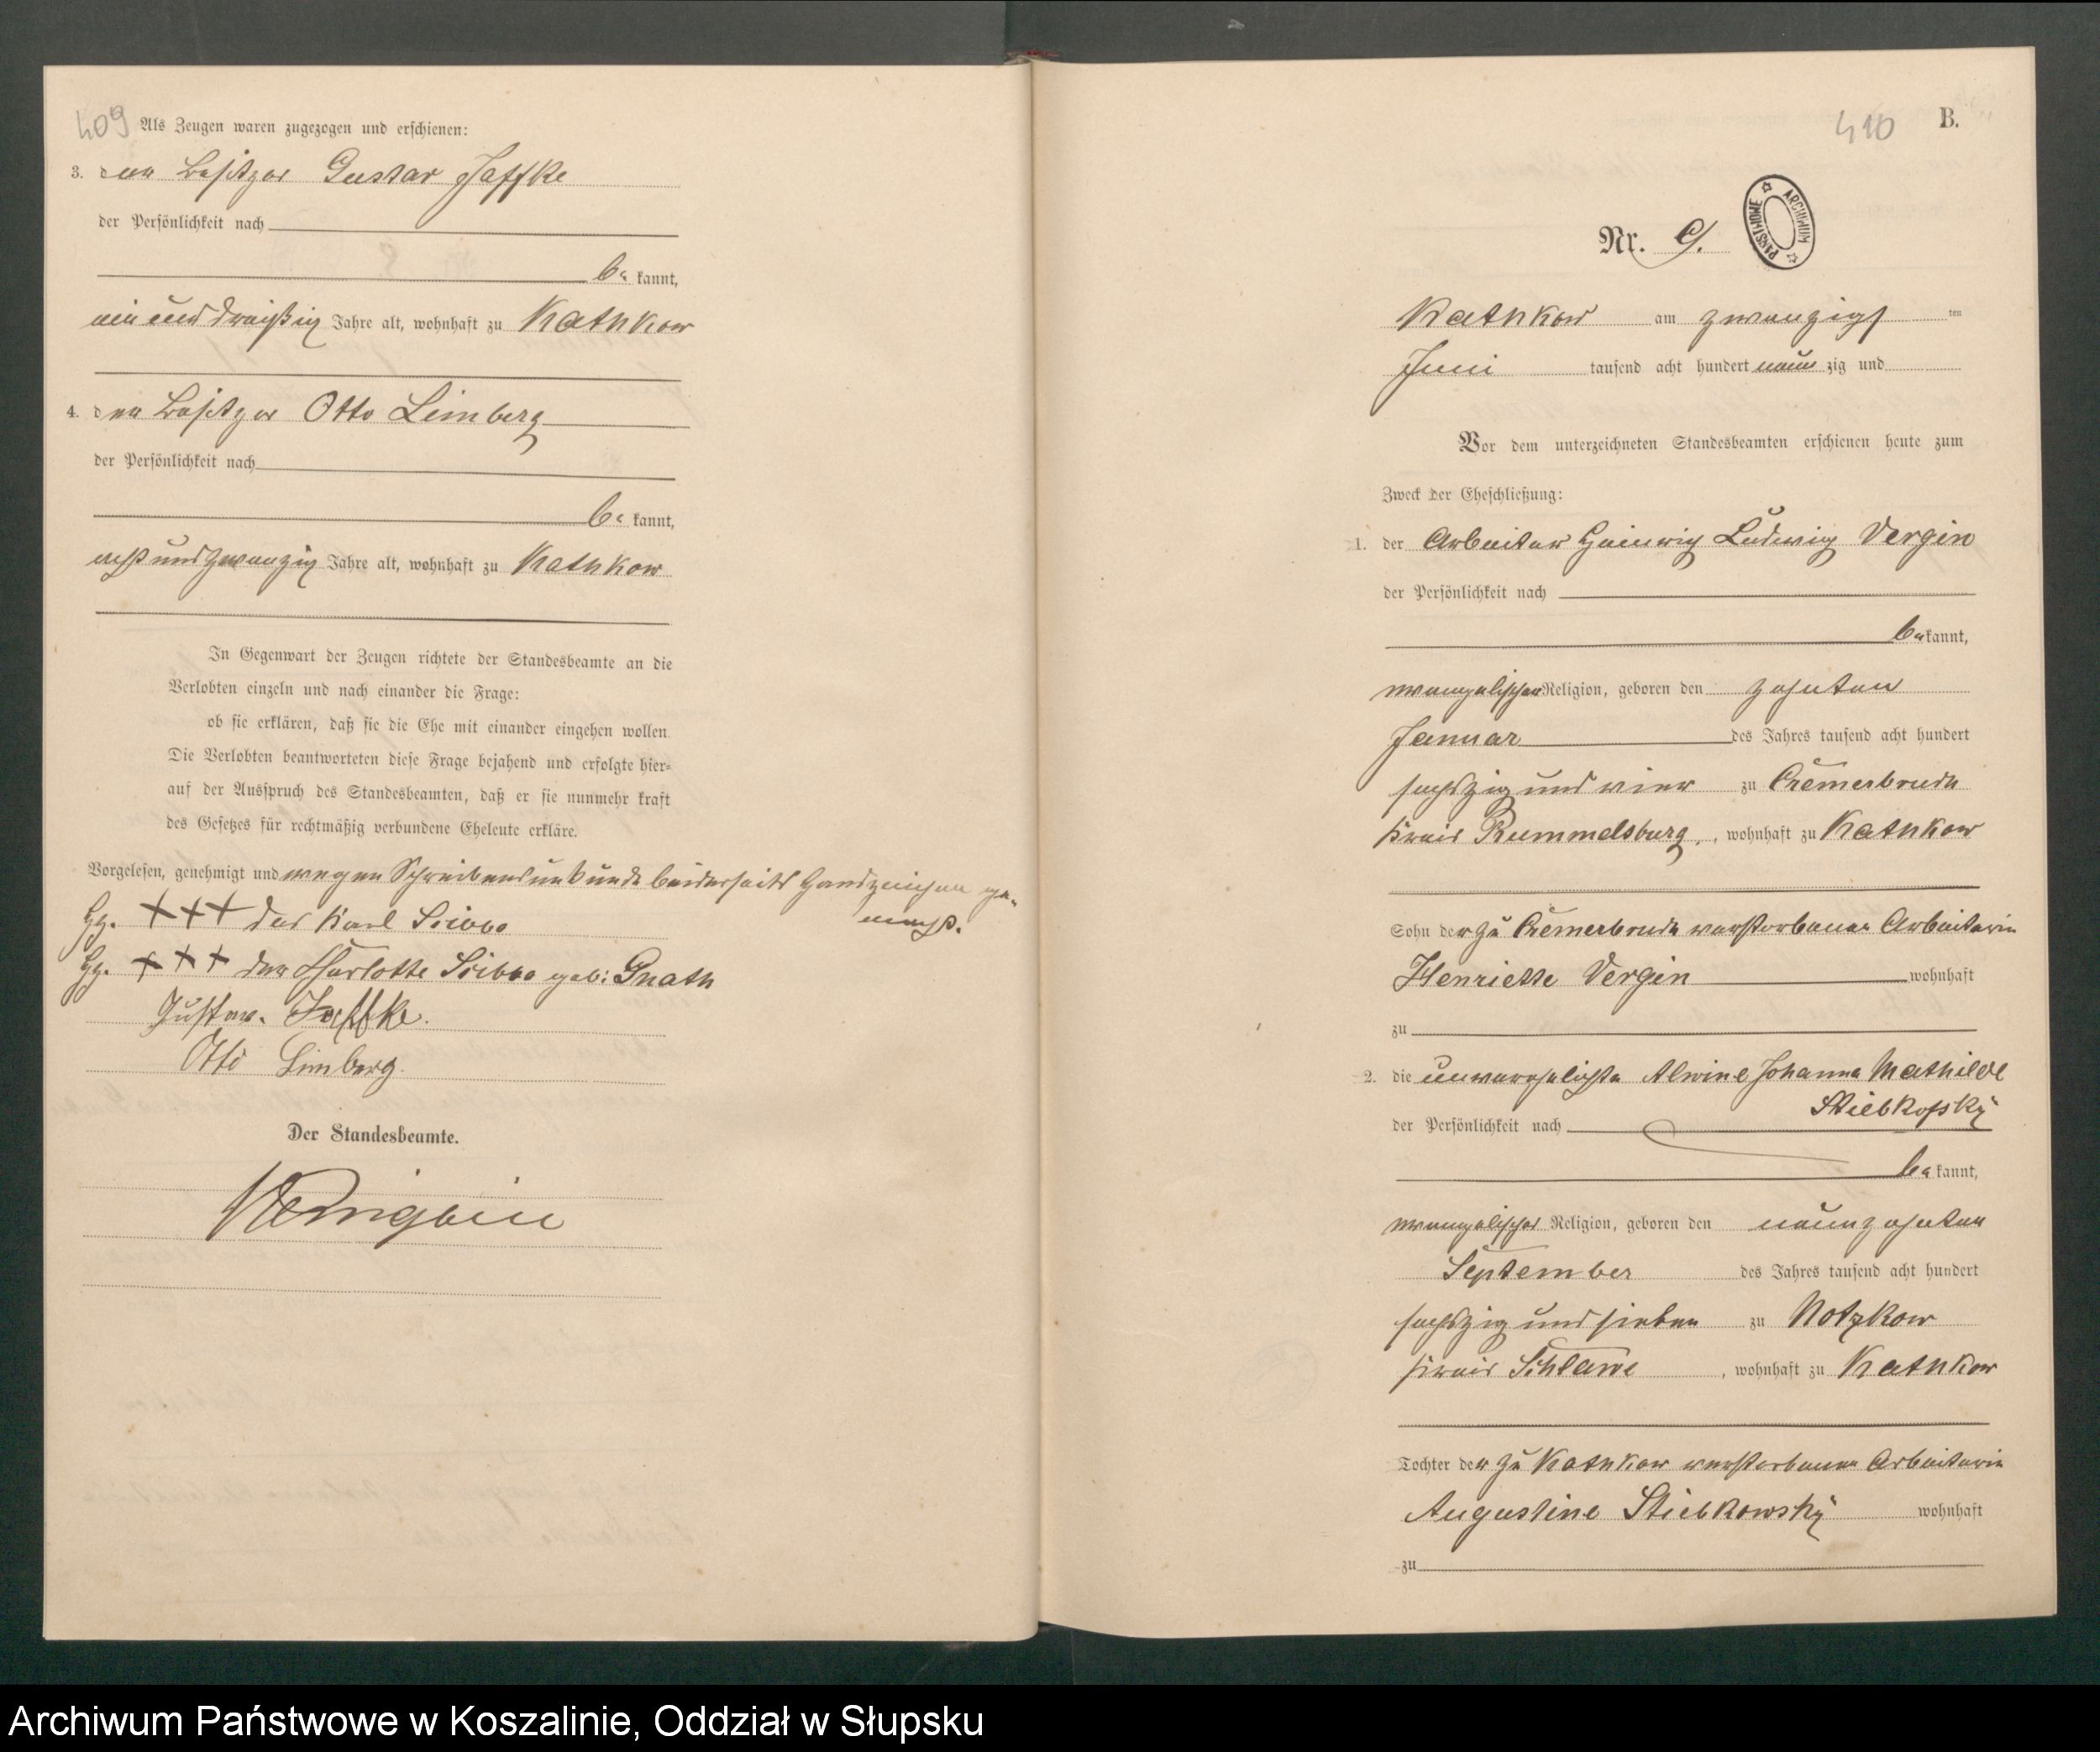 409
Als Zeugen waren zugezogen und erschienen:
3. den Besitzer Gustav Jaffke
der Persönlichkeit nach
be kannt,
ein und dreißig Jahre alt, wohnhaft zu Kathkow
4. den Besitzer Otto Limberg
der Persönlichkeit nach
be kannt,
acht und zwanzig Jahre alt, wohnhaft zu Kathkow
In Gegenwart der Zeugen richtete der Standesbeamte an die
Verlobten einzeln und nach einander die Frage:
ob sie erklären, daß sie die Ehe mit einander eingehen wollen.
Die Verlobten beantworteten diese Frage bejahend und erfolgte hier-
auf der Ausspruch des Standesbeamten, daß er sie nunmehr kraft
des Gesetzes für rechtmäßig verbundene Eheleute erkläre.
Vorgelesen, genehmigt und wegen Schreibensunkunde beiderseits Handzeichen ge-
macht.
Hz. +++ des Karl
Hz. +++ der Charlotte geb: Gnath
Gustav Jaffke.
Otto Limberg.
Der Standesbeamte.
410 B.
Nr. 9.
ARCHIWUM PAŃSTWOWE
Kathkow am zwanzigs ten
Juni tausend acht hundert neun zig und
Vor dem unterzeichneten Standesbeamten erschienen heute zum
Zweck der Eheschließung:
1. der Arbeiter Heinrich Ludwig Vergin
der Persönlichkeit nach
be kannt,
evangelischer Religion, geboren den zehnten
Januar des Jahres tausend acht hundert
sechszig und vier zu Cremerbruch
Kreis Rummelsburg, wohnhaft zu Kathkow
Sohn der zu Cremerbruch verstorbenen Arbeiterin
Henriette Vergin wohnhaft
zu
2. die unverehelichte Alwine Johanna Mathilde
Stiebkofsky
der Persönlichkeit nach
be kannt,
evangelischer Religion, geboren den neunzehnten
September des Jahres tausend acht hundert
sechszig und sieben zu Notzkow
Kreis Schlawe, wohnhaft zu Kathkow
Tochter der zu Kathkow verstorbenen Arbeiterin
Augustine Stiebkowsky wohnhaft
zu
Archiwum Państwowe w Koszalinie, Oddział w Słupsku